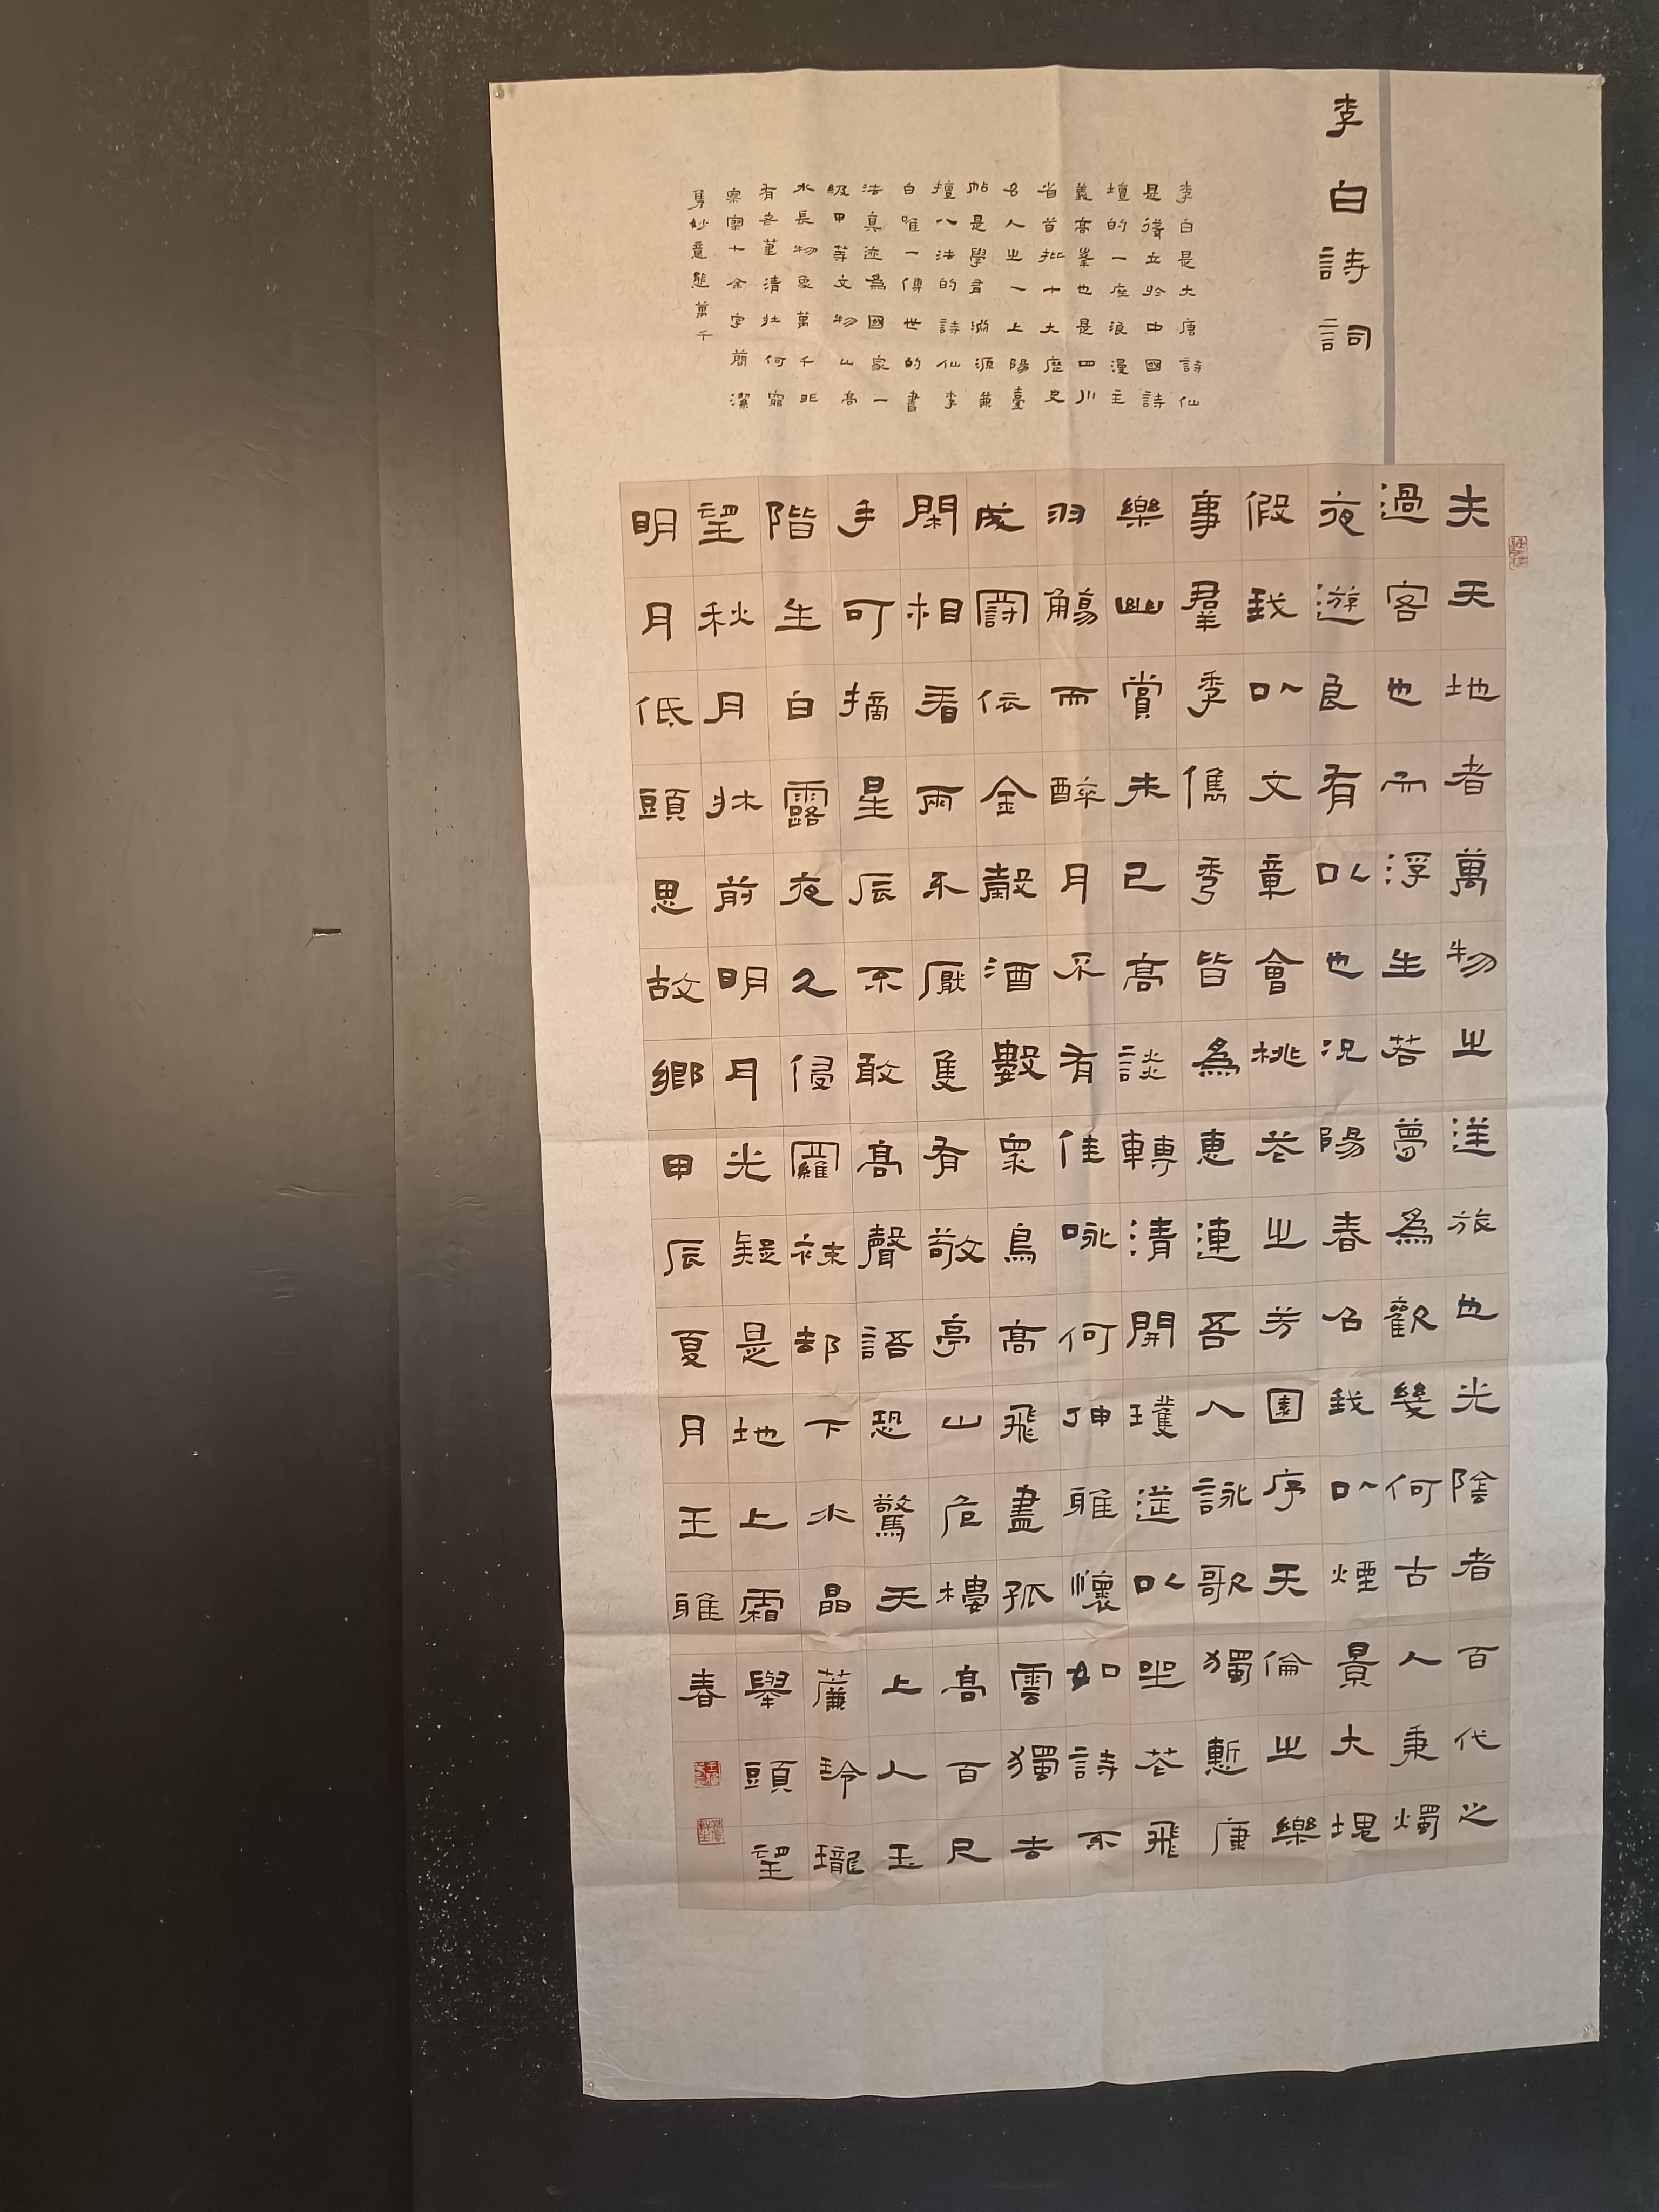 李白詩詞
李白是大唐詩仙
是聳立於中國詩
壇的一座浪漫主
義高峯也是四川
省首批十大歷史
名人之一上陽臺
帖是學書淵源兼
擅八法的詩仙李
白唯一傳世的書
法真迹為國家一
級甲等文物山高
水長物象萬千非
有老筆清壯何窮
寥寥十余字簡潔
雋妙意態萬千
夫天地者萬物之逆旅也光陰者百代之
過客也而浮生若夢為歡幾何古人秉燭
夜遊良有以也況陽春召我以煙景大塊
假我以文章會桃花之芳園序天倫之樂
事羣季儁秀皆為惠連吾人詠歌獨慙康
樂幽賞未已高談轉清開瓊筵以坐花飛
羽觴而醉月不有佳咏何伸雅懷如詩不
成罰依金穀酒數眾鳥高飛盡孤雲獨去
閑相看兩不厭隻有敬亭山危樓高百尺
手可摘星辰不敢高聲語恐驚天上人玉
階生白露夜久侵羅袜却下水晶簾玲瓏
望秋月牀前明月光疑是地上霜舉頭望
明月低頭思故鄉甲辰夏月王雅春